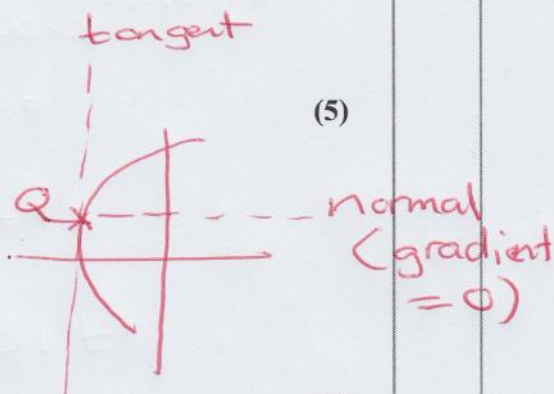 tangent
(5)
Q
normal
(gradient
= 0)